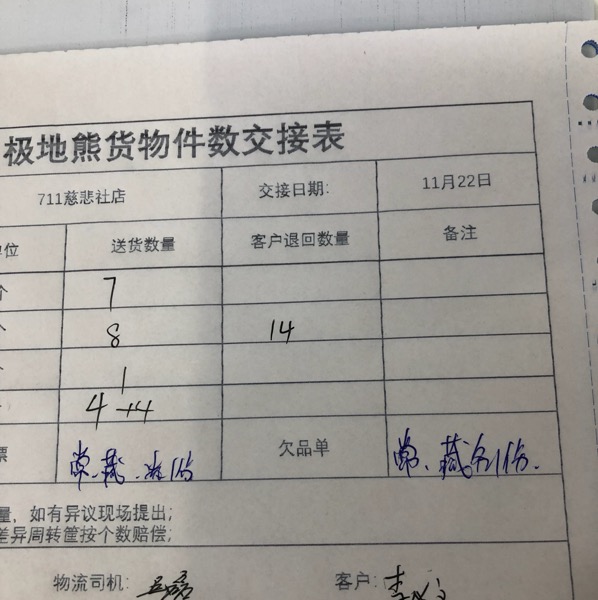 极地熊货物件数交接表
711慈悲社店 交接日期: 11月22日
位 送货数量 客户退回数量 备注
个 7
个 8 14
1
4 +4
票 常、藏、各1份 欠品单 常、藏各1份.
量，如有异议现场提出;
差异周转筐按个数赔偿;
物流司机: 客户: 李